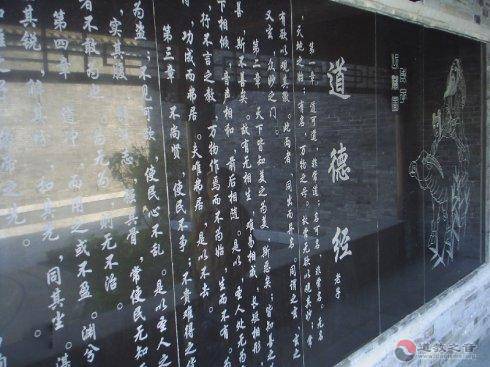 道德经 老子
第一章 道可道,非常道;名可名,非常名。无名
天地之始;有名,万物之母。故常无欲以观其妙,常
有欲以观其徼。此两者,同出而异名。同谓之玄,玄之
又玄,众妙之门。
第二章 天下皆知美之为美,斯恶矣;皆知善之为
善,斯不善矣。故有无相生,难易相成,长短相形,
下相倾,音声相和,前后相随。是以,圣人处无为
行不言之教,万物作焉而不为始,生而不有,
功成而弗居。夫唯弗居,是以不去。
第三章 不尚贤,使民不争;不贵难得之
为盗;不见可欲,使民心不乱。是以圣人之
实其腹,其志,强其骨,常使民无知
者不敢为也。为无为,则无不治。
第四章 道冲,而用之或不盈。渊兮
其锐,解其纷,和其光,同其尘。湛
道教之音